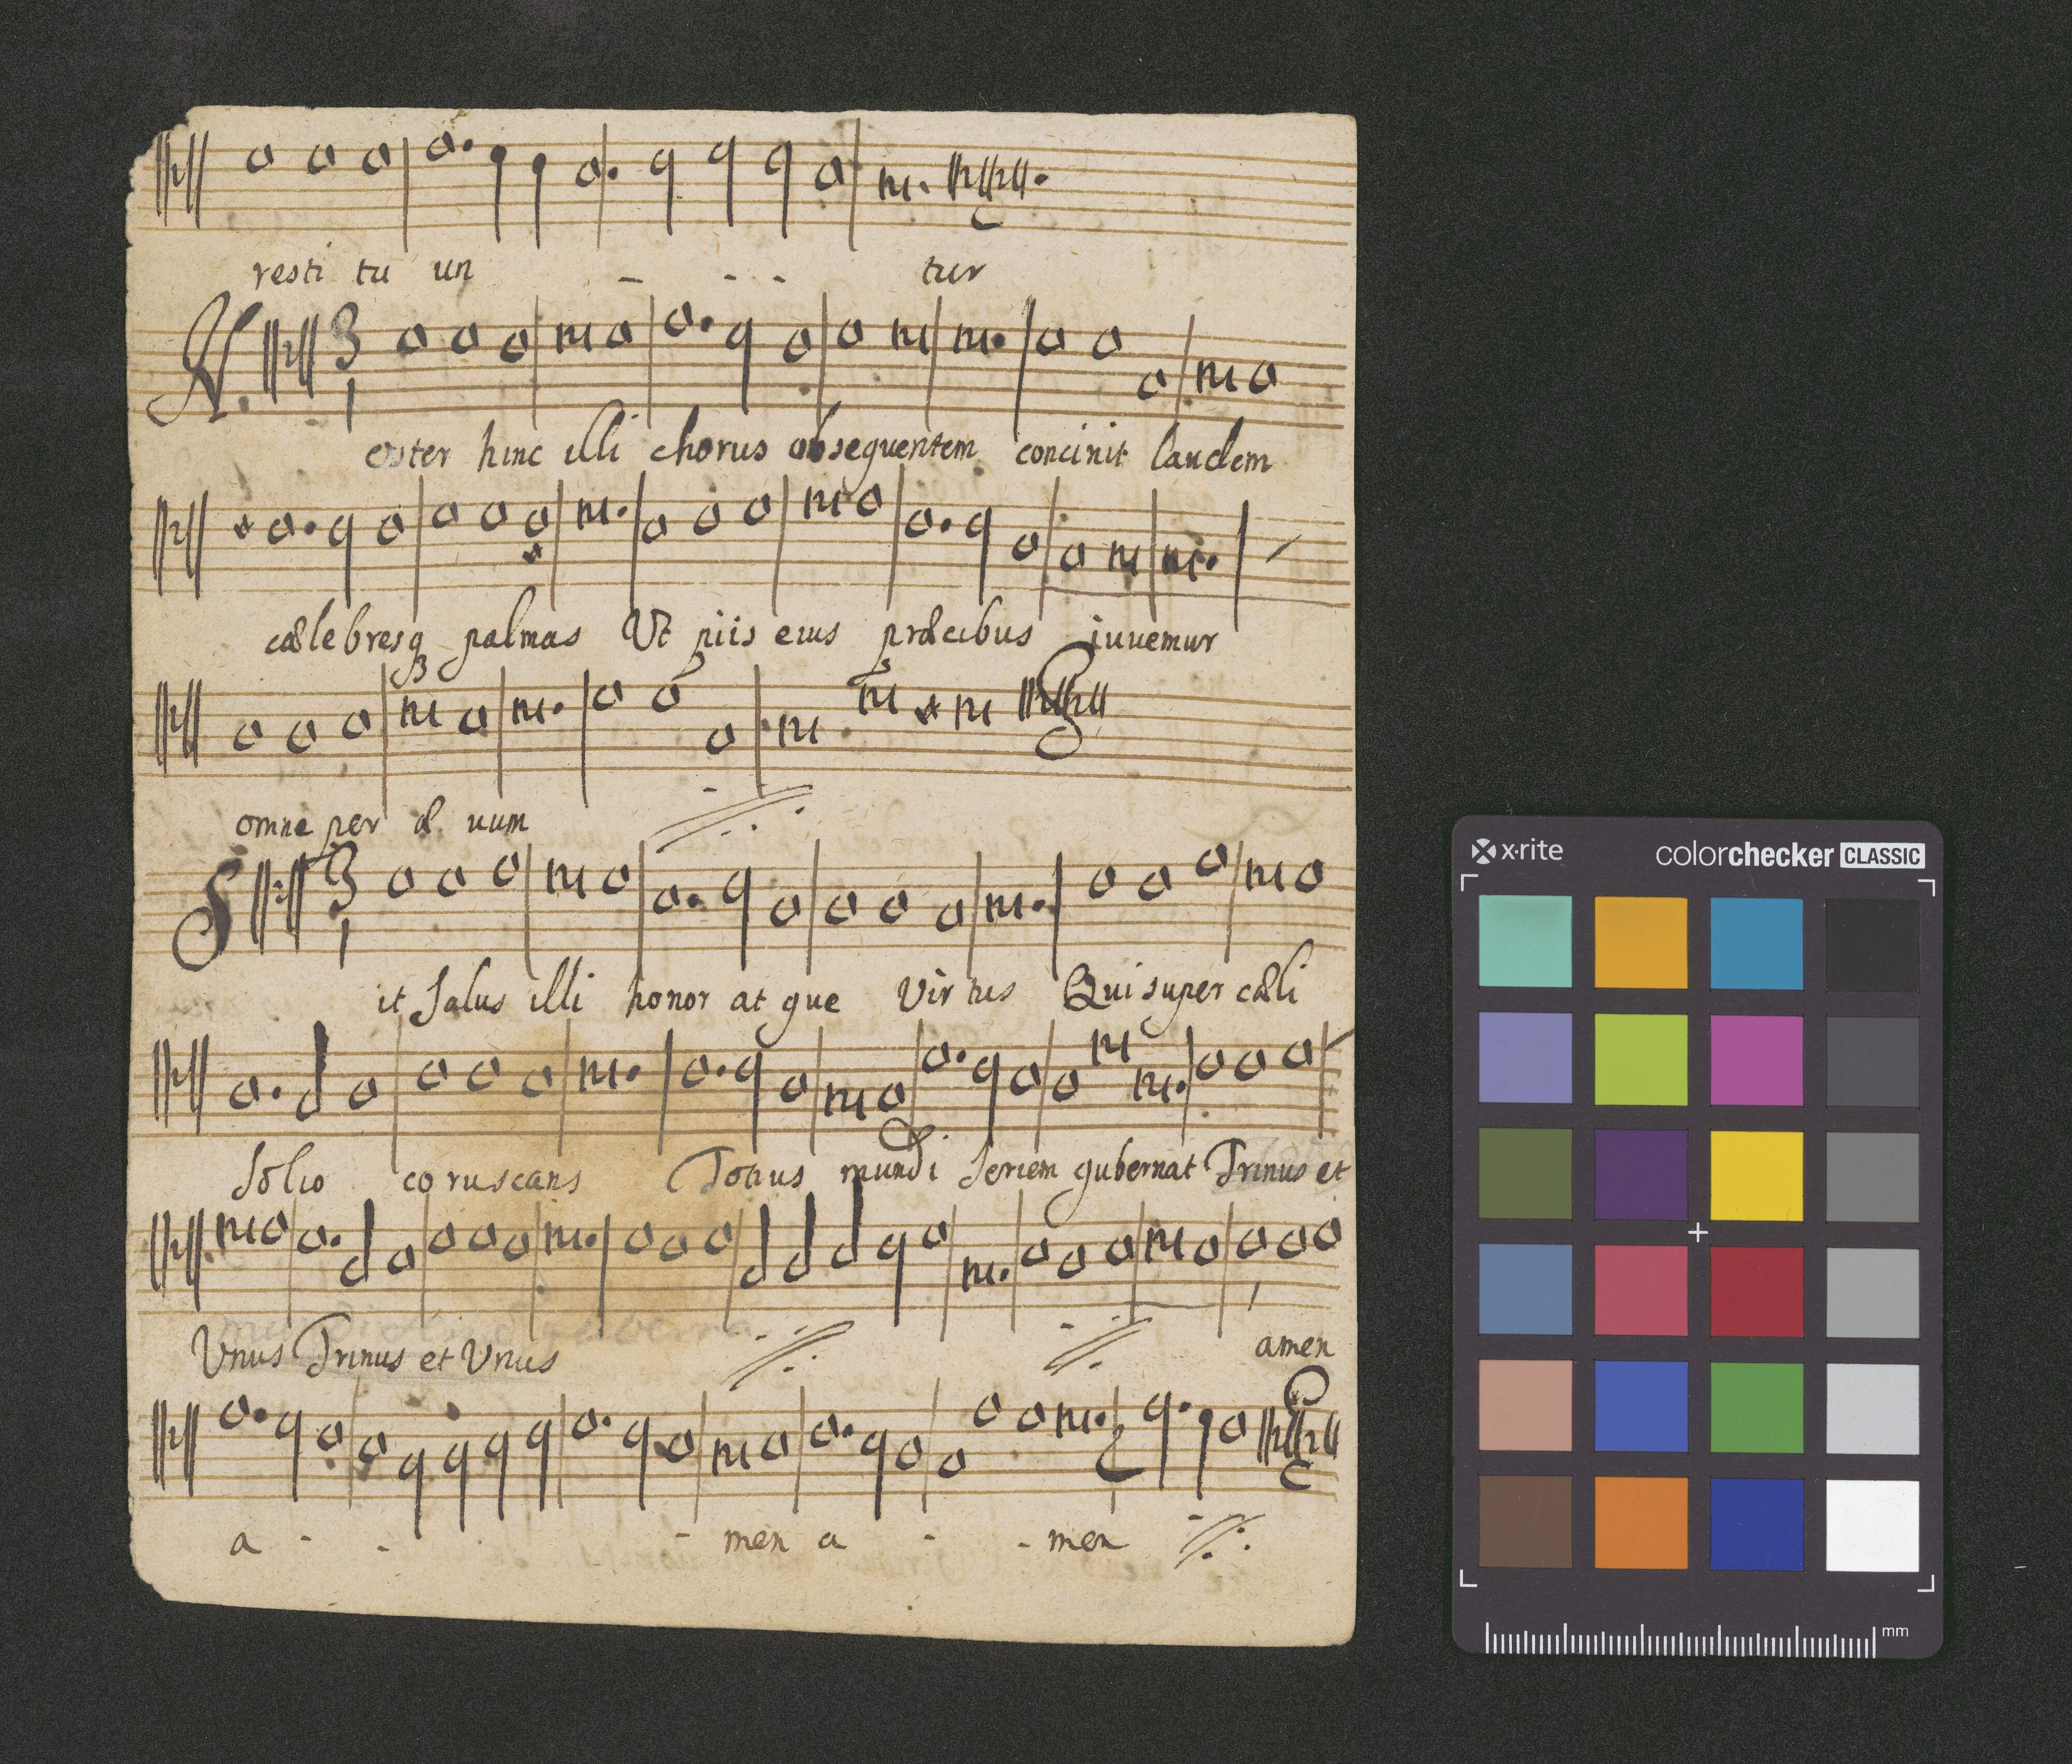 resti tu un - - - tur
N. 3
1
oster hinc illi chorus obsequentem concinit laudem
cælebresq3 palmas Ut piis eius præcibus iuvemur
omne per æ uum
S 3
1
it Salus illi honor at que Virtus Qui super cæli
Solio co ruscans Totius mundi Seriem gubernat Trinus et
Vnus Trinus et Vnus amen
a - - - men a - - men
x·rite colorchecker CLASSIC
mm